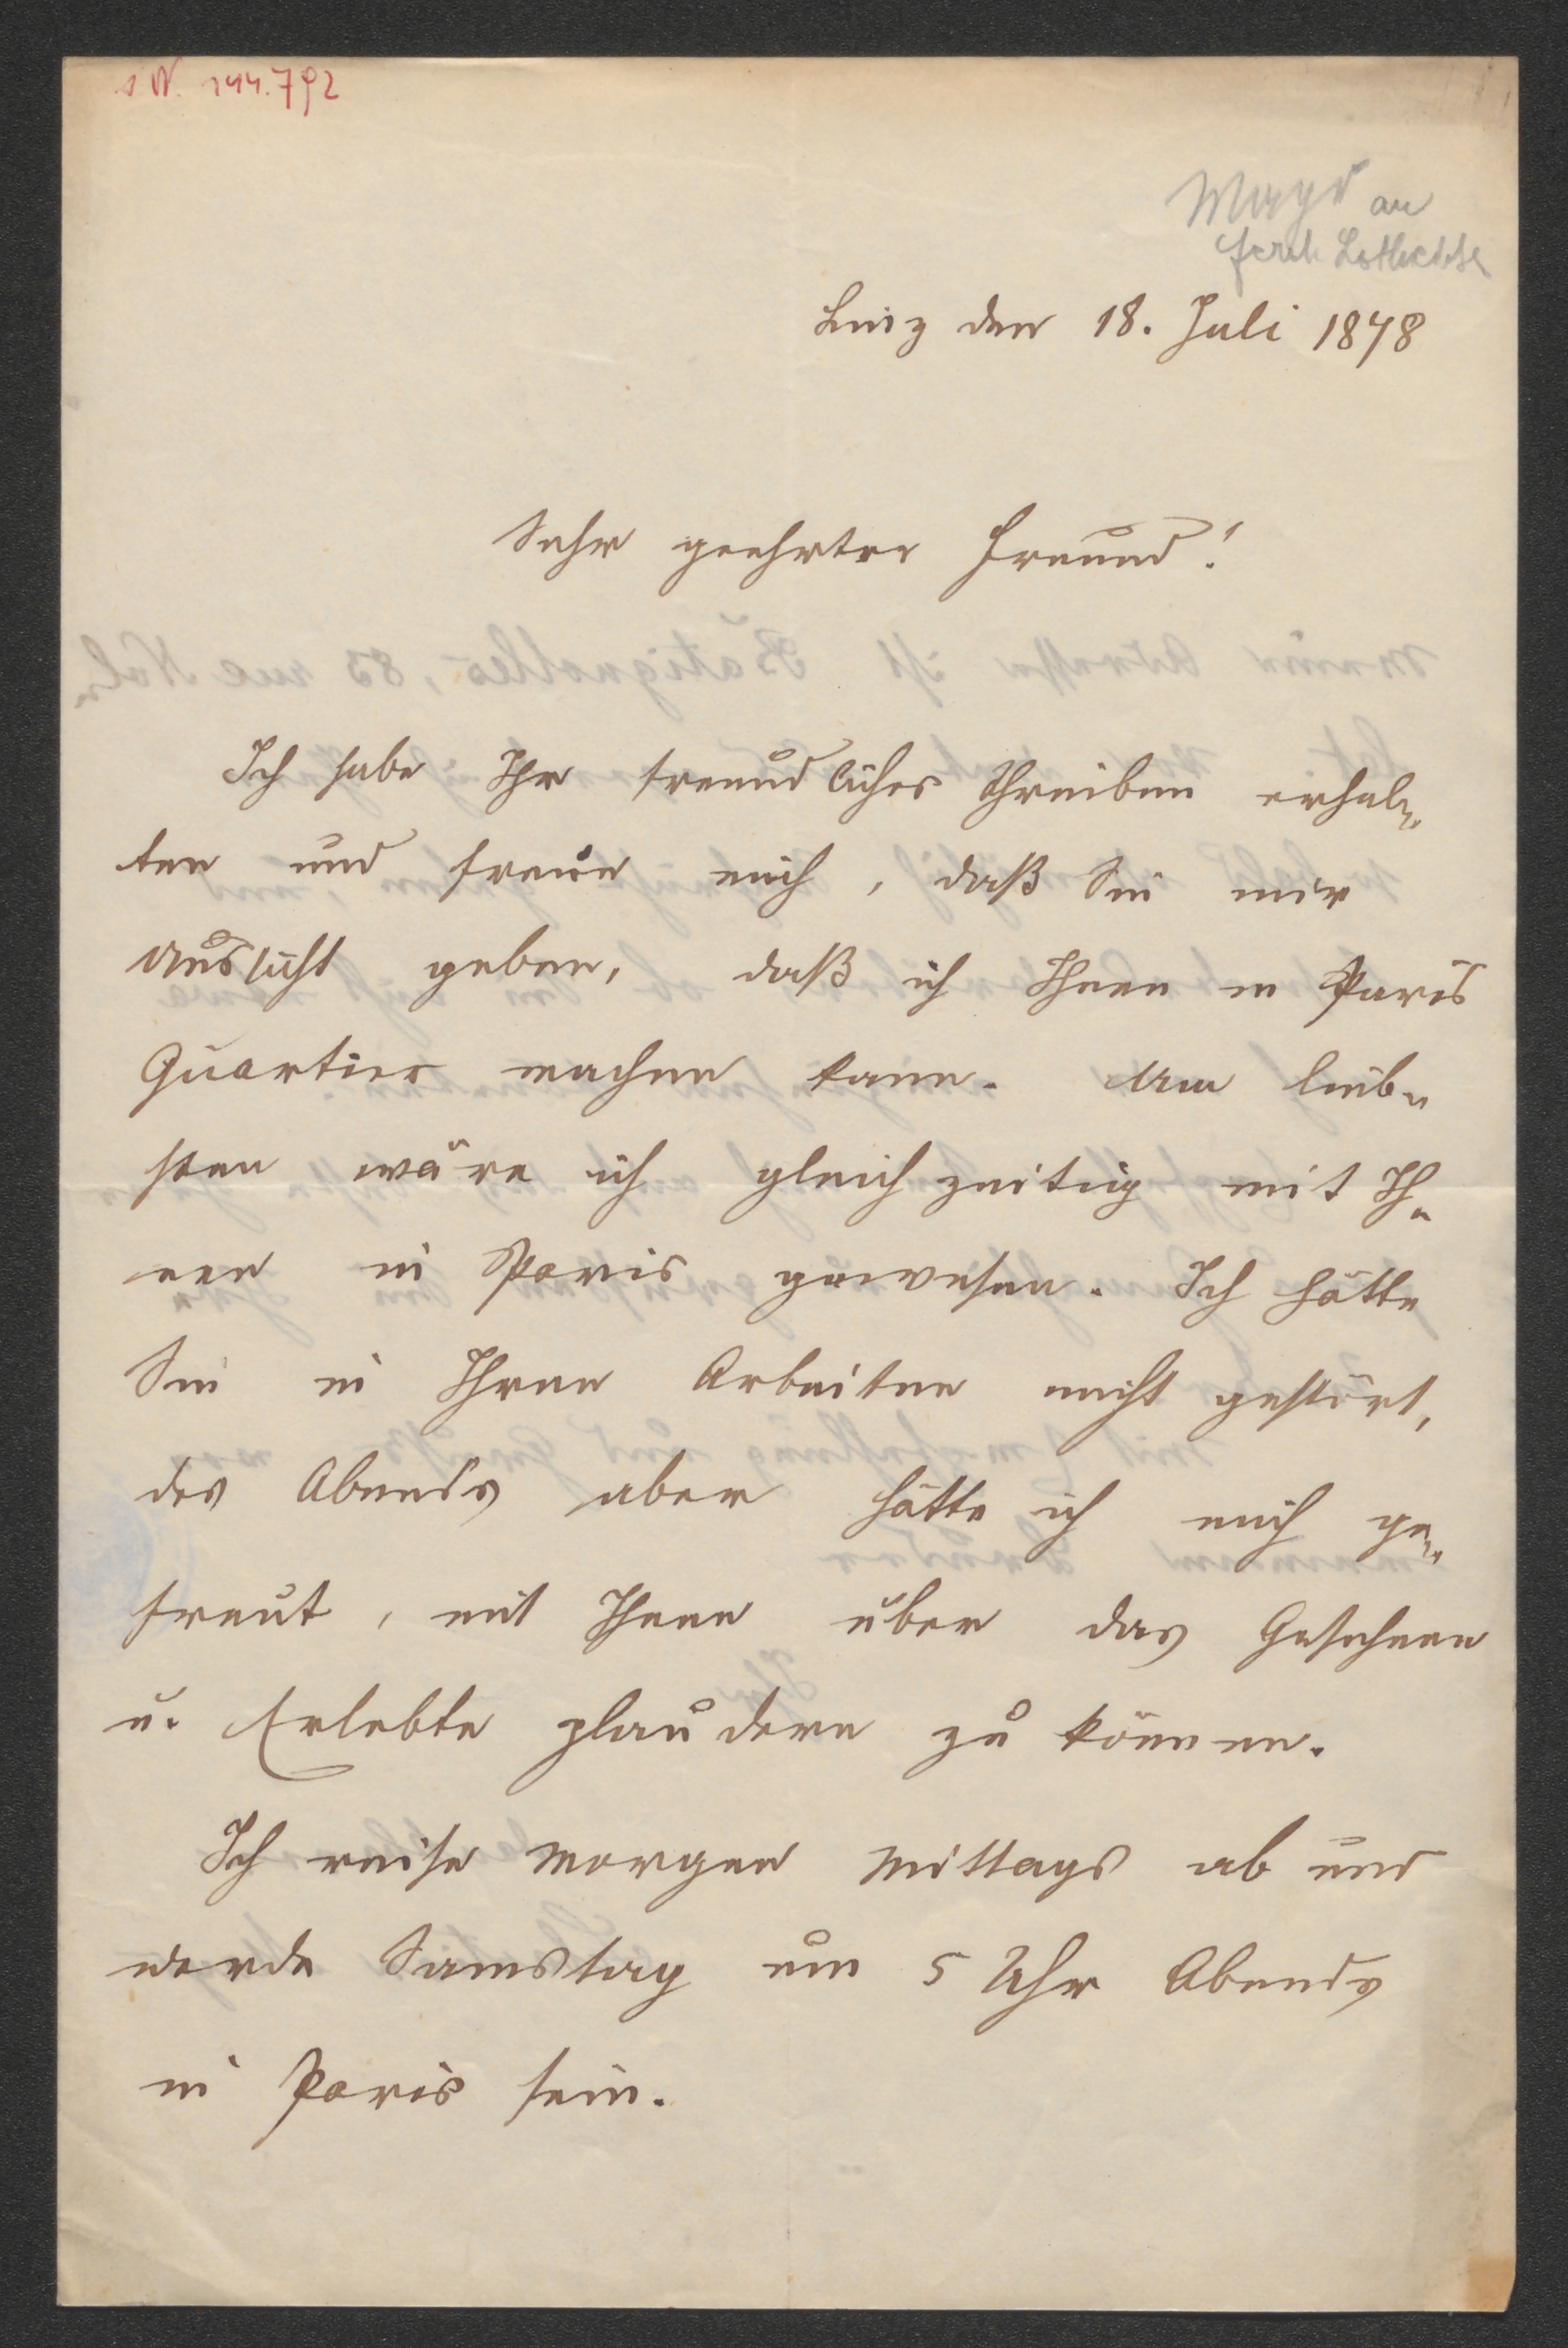 I.N. 144.792
Mayr an
Ferd. Lotheißen
Linz den 18. Juli 1878
Sehr geehrter Freund!
Ich habe Ihr freundliches Schreiben erhal-
ten und freue mich, daß Sie mir
Aussicht geben, daß ich Ihnen in Paris
Quartier machen kann. Am lieb-
sten wäre ich gleichzeitig mit Ih-
nen in Paris gewesen. Ich hätte
Sie in Ihren Arbeiten nicht gestört,
des Abends aber hätte ich mich ge-
freut, mit Ihnen über das Gesehene
u. Erlebte plaudern zu können.
Ich reise morgen Mittags ab und
werde Samstag um 5 Uhr Abends
in Paris sein.